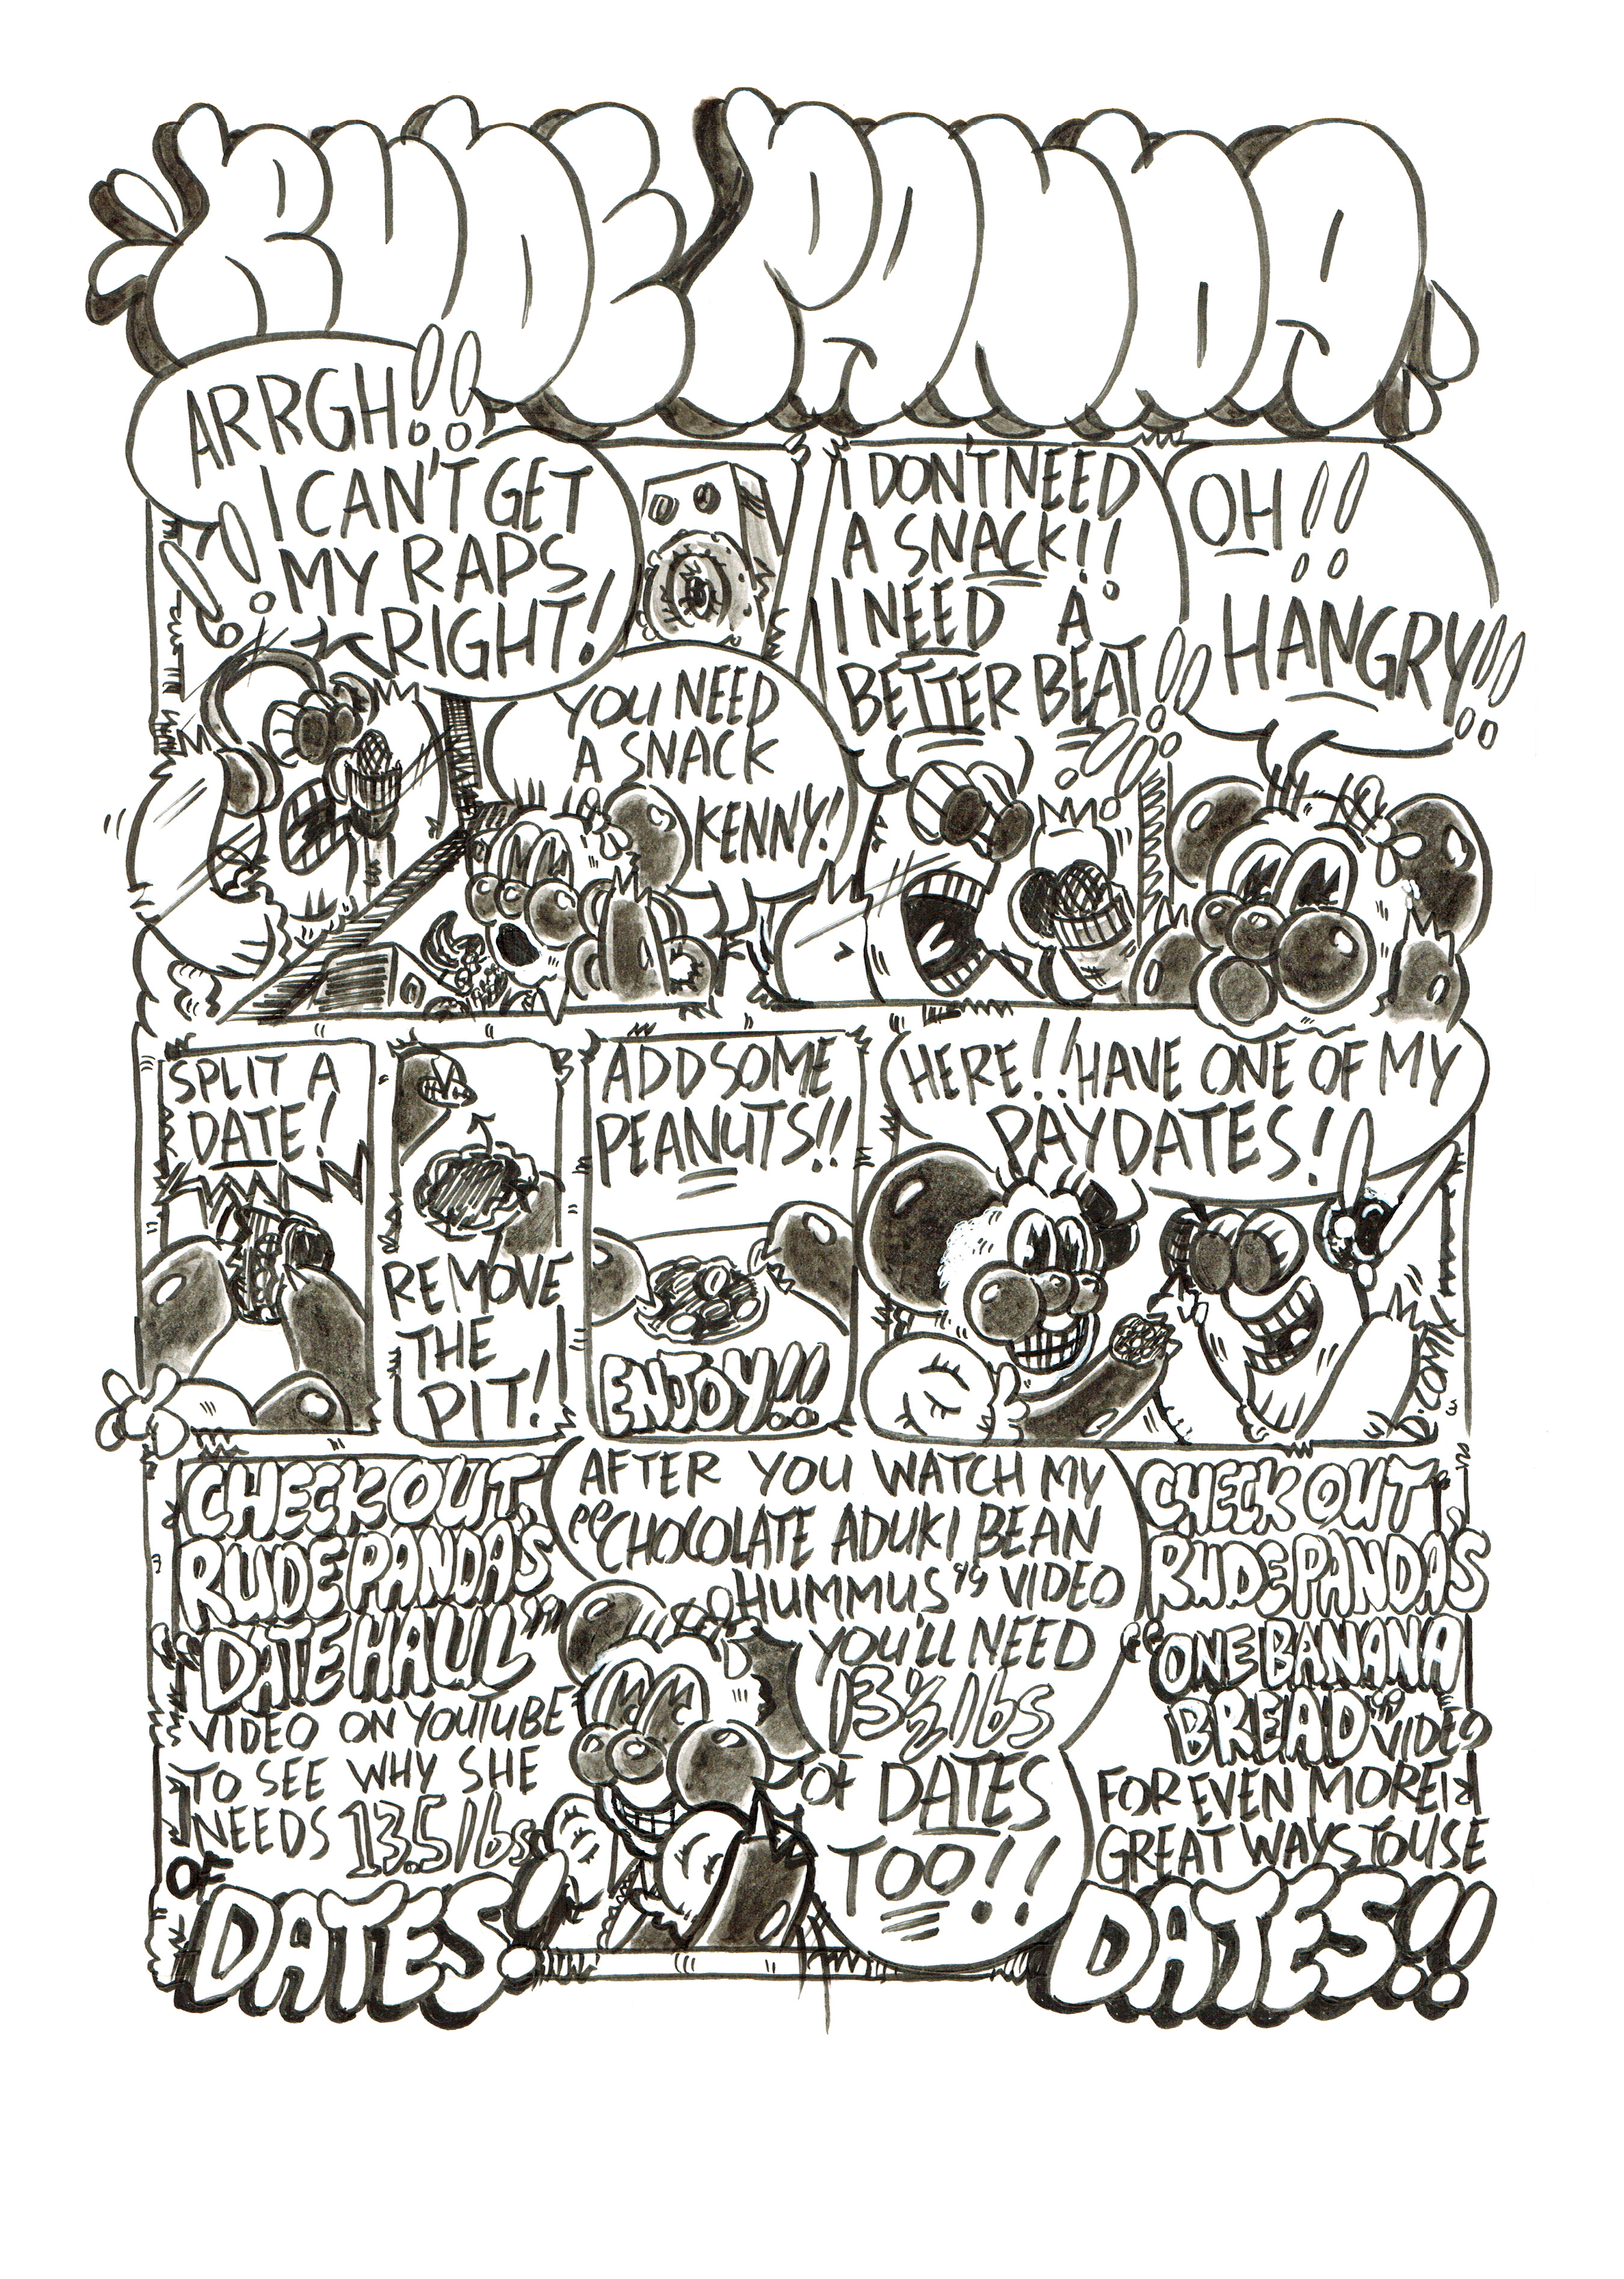 RUDE PANDA
ARRGH!!
I CAN'T GET
MY RAPS
RIGHT!
YOU NEED
A SNACK
KENNY!
I DON'T NEED
A SNACK!!
I NEED A
BETTER BEAT!!
OH!!
HANGRY!!
SPLIT A
DATE!
REMOVE
THE
PIT!
ADD SOME
PEANUTS!!
ENJOY!!!
HERE!! HAVE ONE OF MY
PAYDATES!
CHECK OUT
RUDE PANDA'S
"DATE HAUL"
VIDEO ON YOUTUBE
TO SEE WHY SHE
NEEDS 13.5 lbs
OF
DATES!
AFTER YOU WATCH MY
"CHOCOLATE ADUKI BEAN
HUMMUS" VIDEO
YOU'LL NEED
13 1/2 lbs
OF DATES
TOO!!
CHECK OUT
RUDE PANDA'S
"ONE BANANA
BREAD" VIDEO
FOR EVEN MORE
GREAT WAYS TO USE
DATES!!